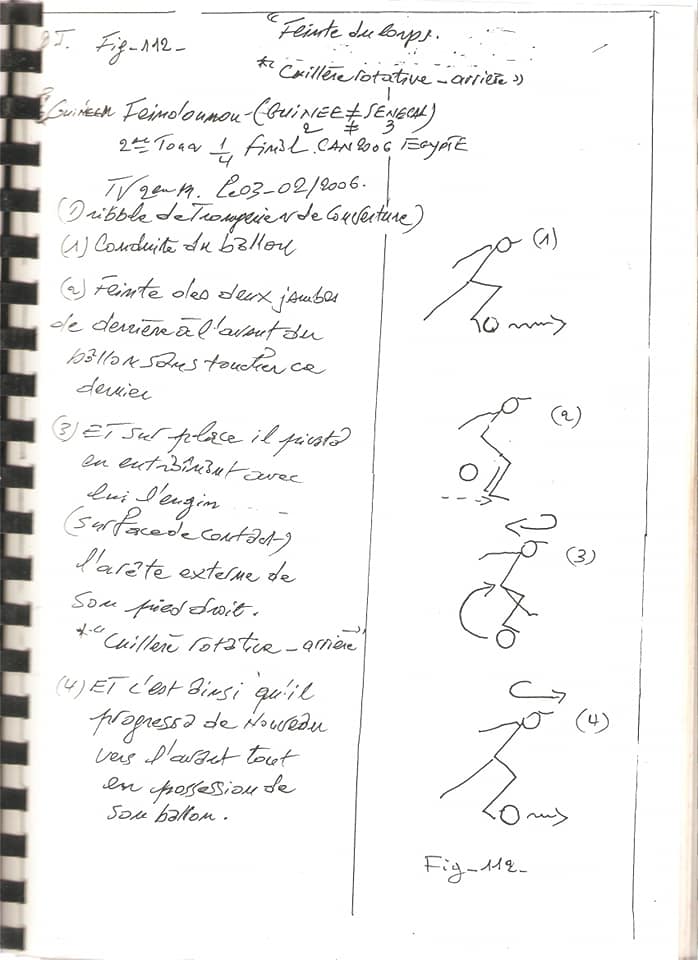 "Feinte du corps.
Fig-112-
*"Cuillère rotative-arrière"
Feindounou-(GUINEE ≠ SENEGAL)
2 ≠ 3
2me Tour 1/4 final. CAN 2006 EGYPTE
Le 03-02/2006.
(Dribble de Tromperie de Couverture)
(1) Conduite du ballon
(1)
(2) Feinte des deux jambes
de derrière à l'avant du
ballon sans toucher ce
dernier
(2)
(3) ET sur place il pivota
en entraînant avec
lui l'engin
(surface de contact)
l'arête externe de
son pied droit.
*"Cuillère rotative-arrière"
(3)
(4) ET c'est ainsi qu'il
progressa de nouveau
vers l'avant tout
en possession de
son ballon.
(4)
Fig-112-